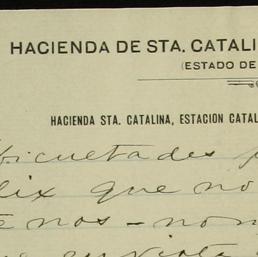 HACIENDA DE STA. CATALI
(ESTADO DE
HACIENDA STA. CATALINA, ESTACION CATAL
ficultades p
lix que no
e nos - no